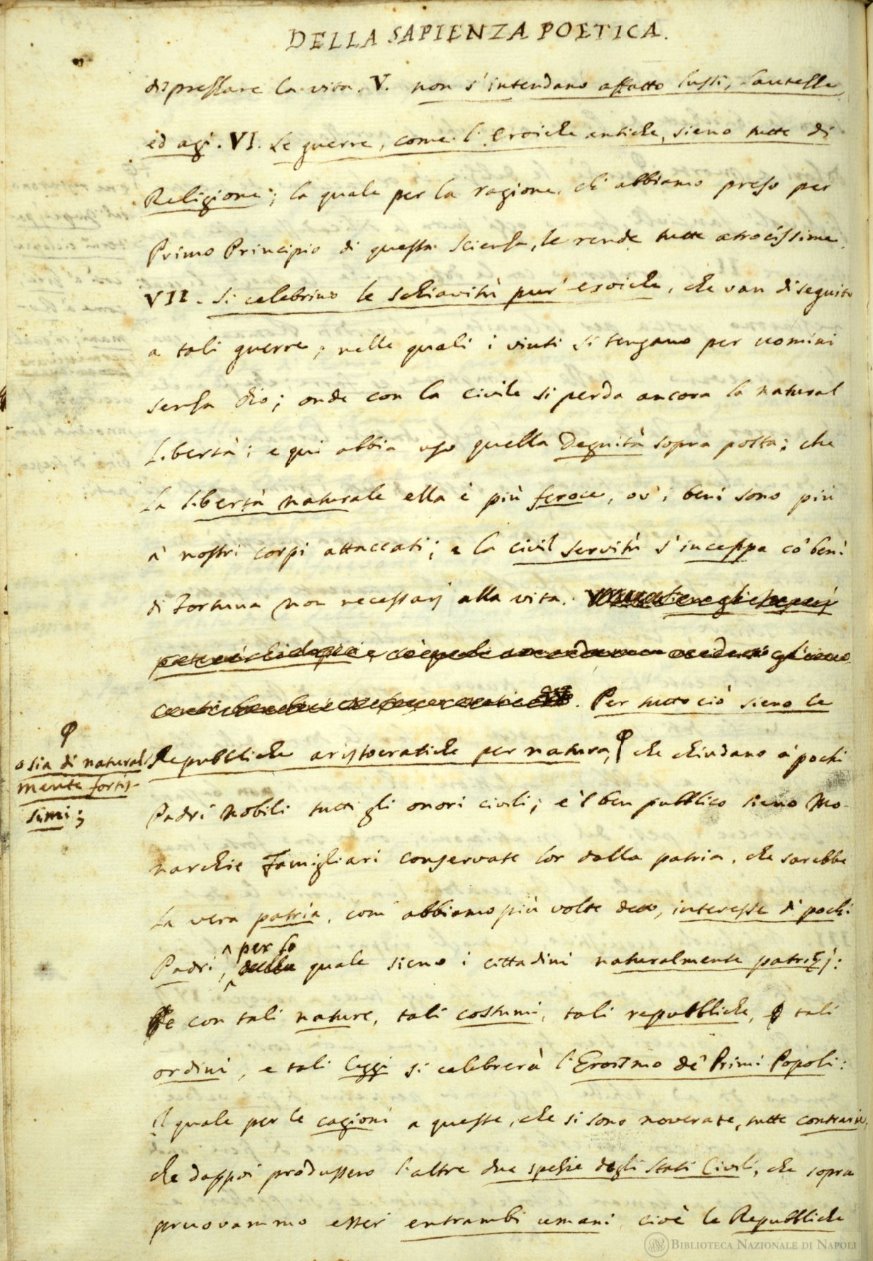 DELLA SAPIENZA POETICA.
disprezzare la vita. V. non s'intendano affatto lussi, lautezze,
ed agi. VI. Le guerre, come l'eroiche antiche, sieno tutte di
Religione; la quale per la ragione, ch'abbiamo preso per
Primo Principio di questa Scienza, le rende tutte atrocissime.
VII. Si celebrino le schiavitù pur'eroiche, che van di seguito
a tali guerre, nelle quali i vinti si tengano per uomini
senza Dio; onde con la civile si perda ancora la natural
Libertà: e qui abbia uso quella Degnità sopra posta; che
la libertà naturale ella è più feroce, ov'i beni sono più
a' nostri corpi attaccati; e la civil servitù s'inceppa co' beni
di Fortuna non necessarj alla vita.
. Per tutto ciò sieno le
Repubbliche aristocratiche per natura, φ che chiudano a' pochi
φ
o sia di natural
mente fortis-
simi;
Padri Nobili tutti gli onori civili; e 'l ben pubblico sieno Mo-
narchie Famigliari conservate lor dalla patria, che sarebbe
la vera patria, com'abbiamo più volte detto, interesse di pochi
Padri, per lo quale sieno i cittadini naturalmente patrizj:
e con tali nature, tali costumi, tali repubbliche, tali
ordini, e tali leggi si celebrerà l'Eroismo de' Primi Popoli:
il quale per le cagioni a queste, che si sono noverate, tutte contrarie,
che dappoi produssero l'altre due spezie degli Stati Civili, che sopra
pruovammo esser entrambi umani, cioè le Repubbliche
BIBLIOTECA NAZIONALE DI NAPOLI